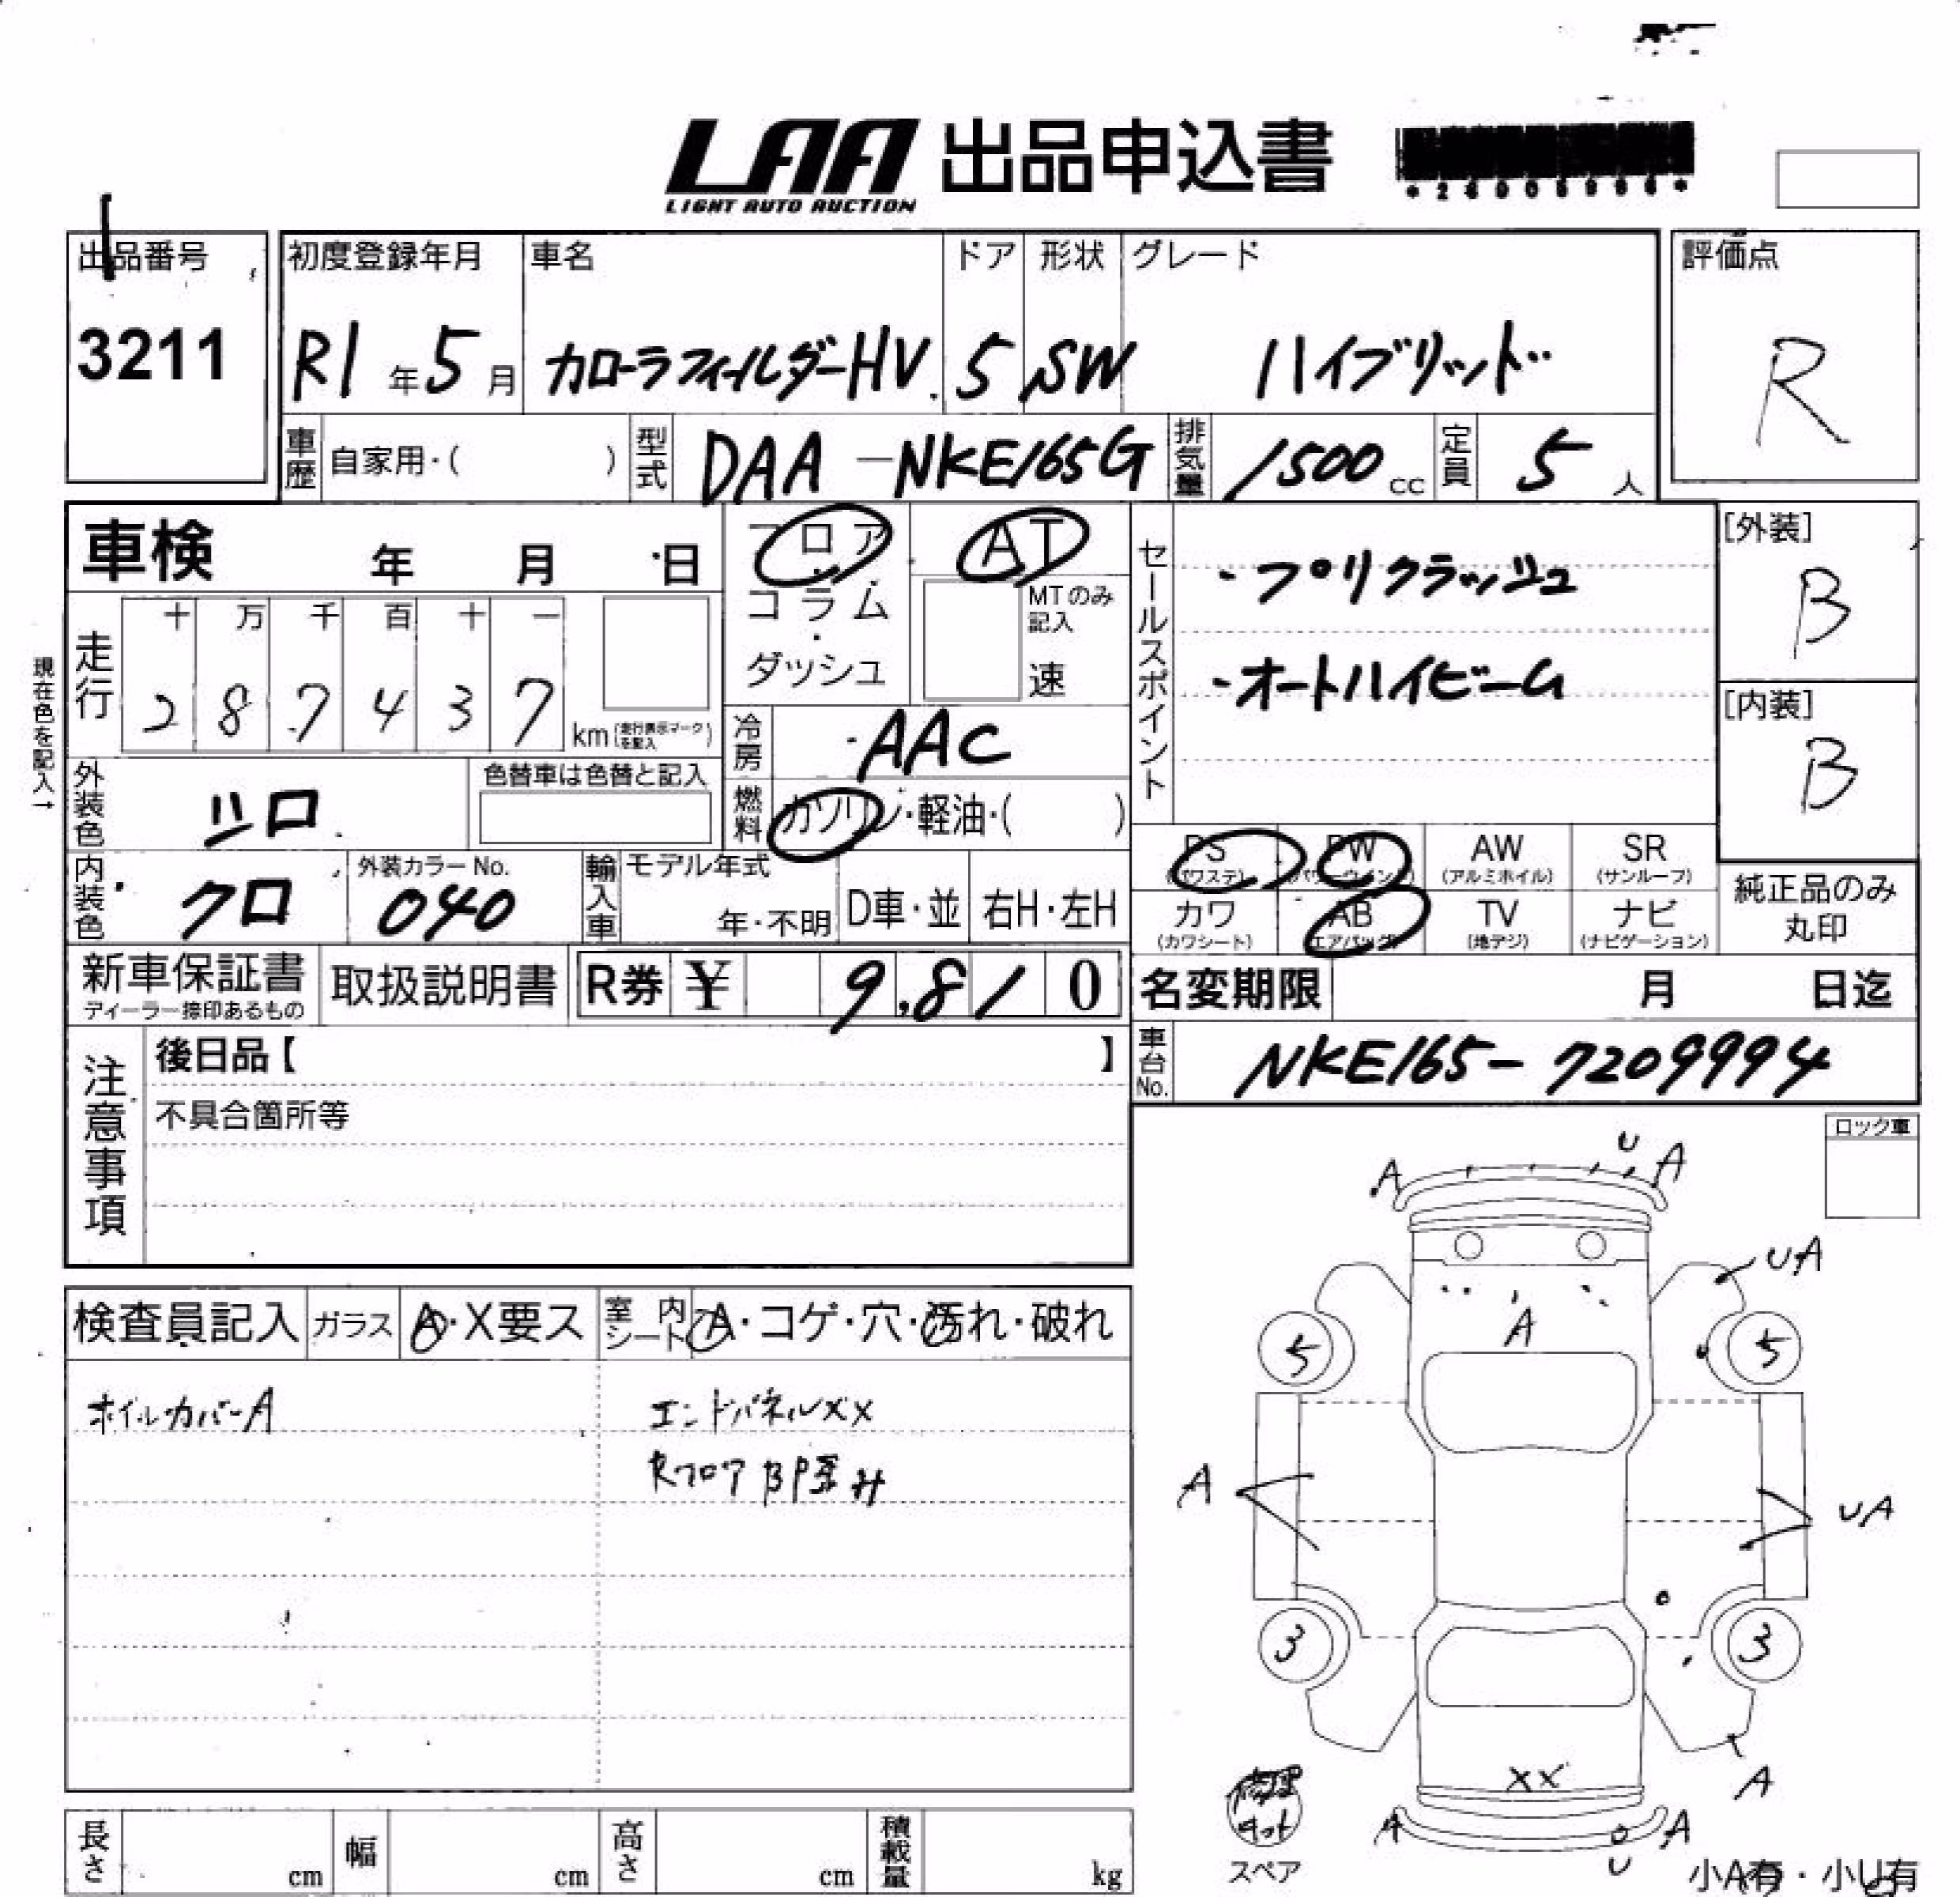 LAA 出品申込書
LIGHT AUTO AUCTION
出品番号 初度登録年月 車名 ドア 形状 グレード 評価点
3211 R1年5月 カローラフィールダーHV 5 SW ハイブリッド R
車歴 自家用・( ) 型式 DAA-NKE165G 排気量 1500cc 定員 5人
車検 年 月 日 フロア AT セールスポイント ・プリクラッシュ [外装]
コラム MTのみ記入 B
ダッシュ 速 ・オートハイビーム [内装]
走行 十 万 千 百 十 一 B
2 8 7 4 3 7 km(走行表示マークを記入)
現在色を記入→
冷房 AAC
外装色 シロ 色替車は色替と記入 燃料 ガソリン・軽油・( )
PS PW AW SR
(パワステ) (パワーウインド) (アルミホイル) (サンルーフ)
内装色 クロ 外装カラーNo. 040 輸入車 モデル年式 年・不明 D車・並 右H・左H
カワ AB TV ナビ 純正品のみ
(カワシート) (エアバッグ) (地デジ) (ナビゲーション) 丸印
新車保証書 取扱説明書 R券 ¥ 9,810 名変期限 月 日迄
ディーラー捺印あるもの
注意事項 後日品【 】 車台No. NKE165-7209994
不具合箇所等
ロック車
検査員記入 ガラス A・X要ス 室内シート A・コゲ・穴・汚れ・破れ
ホイルカバーA エンドパネルXX
RフロアBP歪み
A U A
UA
A
5 5
A UA
3 3
XX A
A A
U
修理キット
スペア 小A有・小U有
長さ cm 幅 cm 高さ cm 積載量 kg